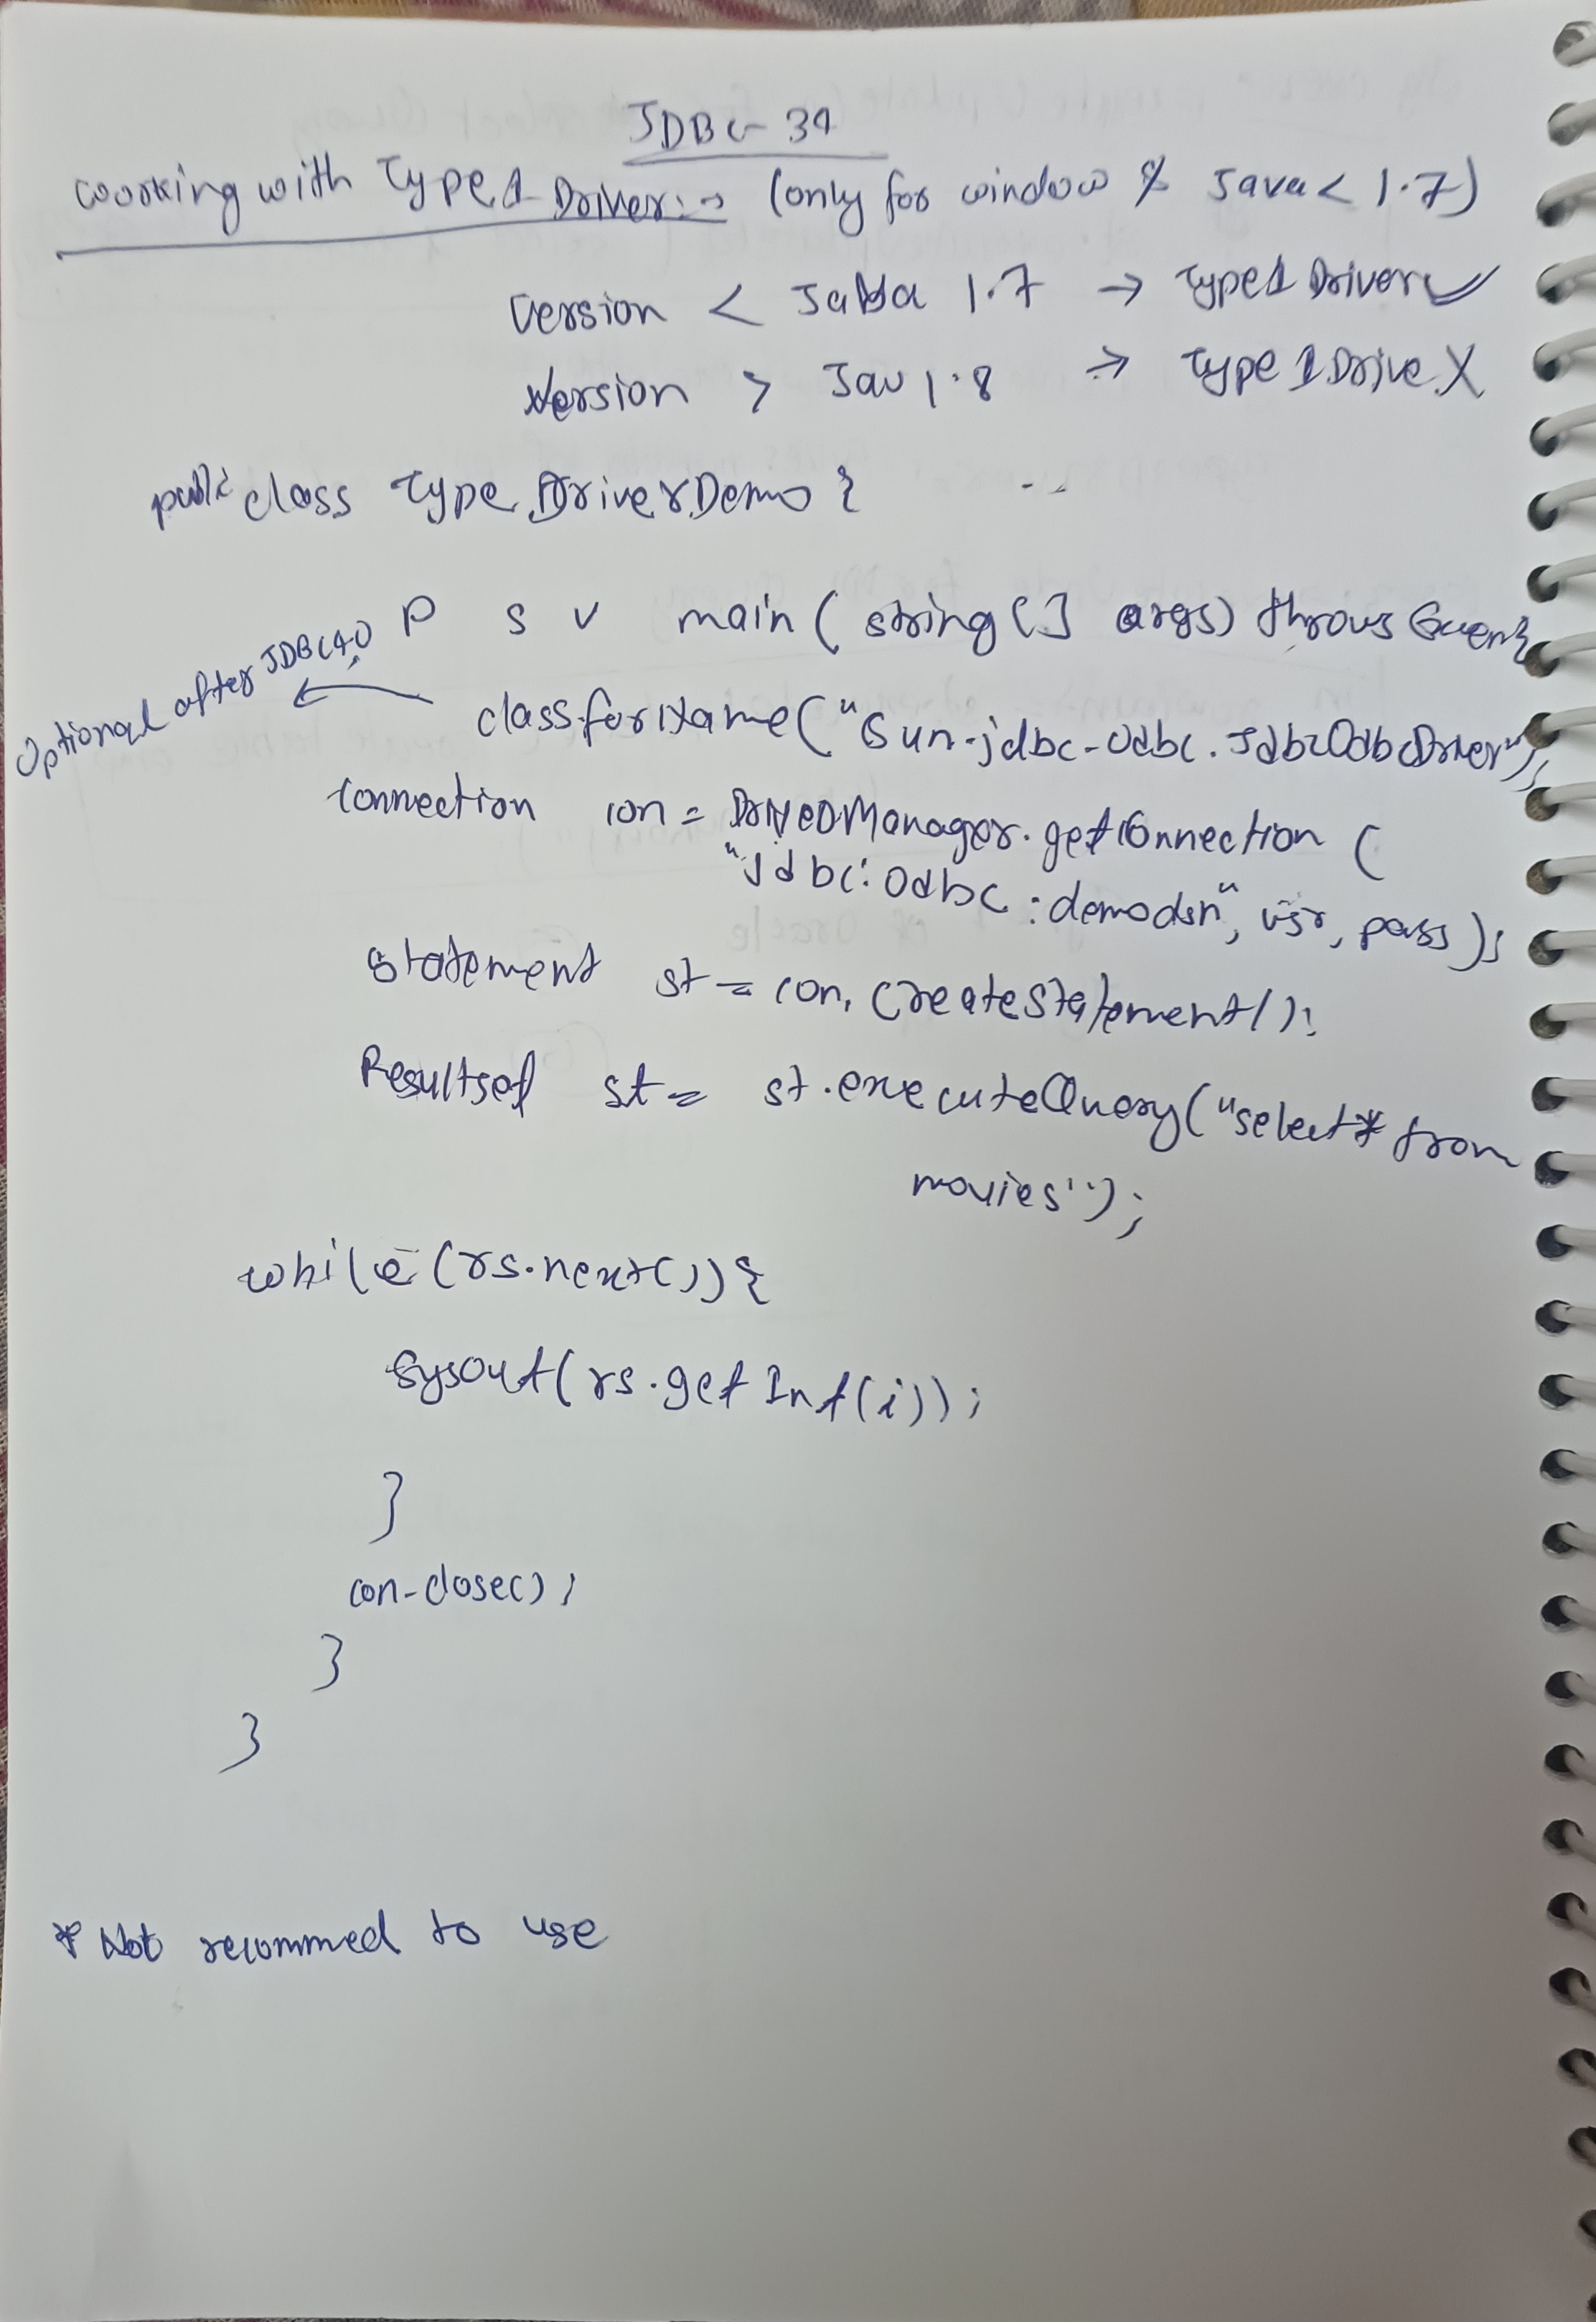 JDBC-34
Working with Type 1 Driver :→ (only for window & Java < 1.7)
Version < Java 1.7 → Type 1 Driver ✓
Version > Jav 1.8 → Type 1 Drive X
public class Type DriverDemo {
P S V main (string [] args) throws
Optional after JDBC 4.0
class.forName("Sun.jdbc.odbc.JdbcOdbcDriver");
Connection con = DriverManager.getConnection (
"Jdbc:Odbc:demodsn", usr, pass);
Statement st = con. createStatement();
Resultset st = st.executeQuery("select * from
movies");
while (rs.next()) {
Sysout(rs.getInt(i));
}
con.close();
}
}
* Not recommed to use